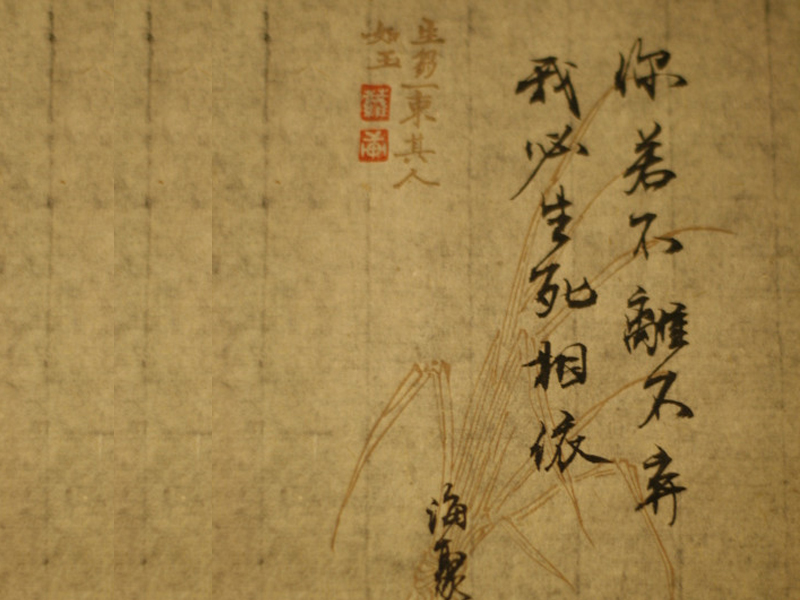 你若不離不弃
我必生死相依
海聚
生芻一束其人
如玉